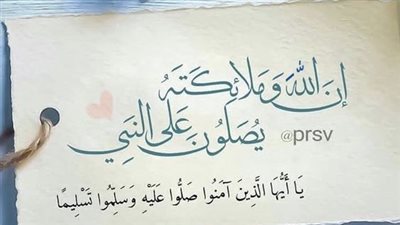 إِنَّ اللَّهَ وَمَلَائِكَتَهُ
يُصَلُّونَ عَلَى النَّبِي
@prsv
يَا أَيُّهَا الَّذِينَ آمَنُوا صَلُّوا عَلَيْهِ وَسَلِّمُوا تَسْلِيمًا